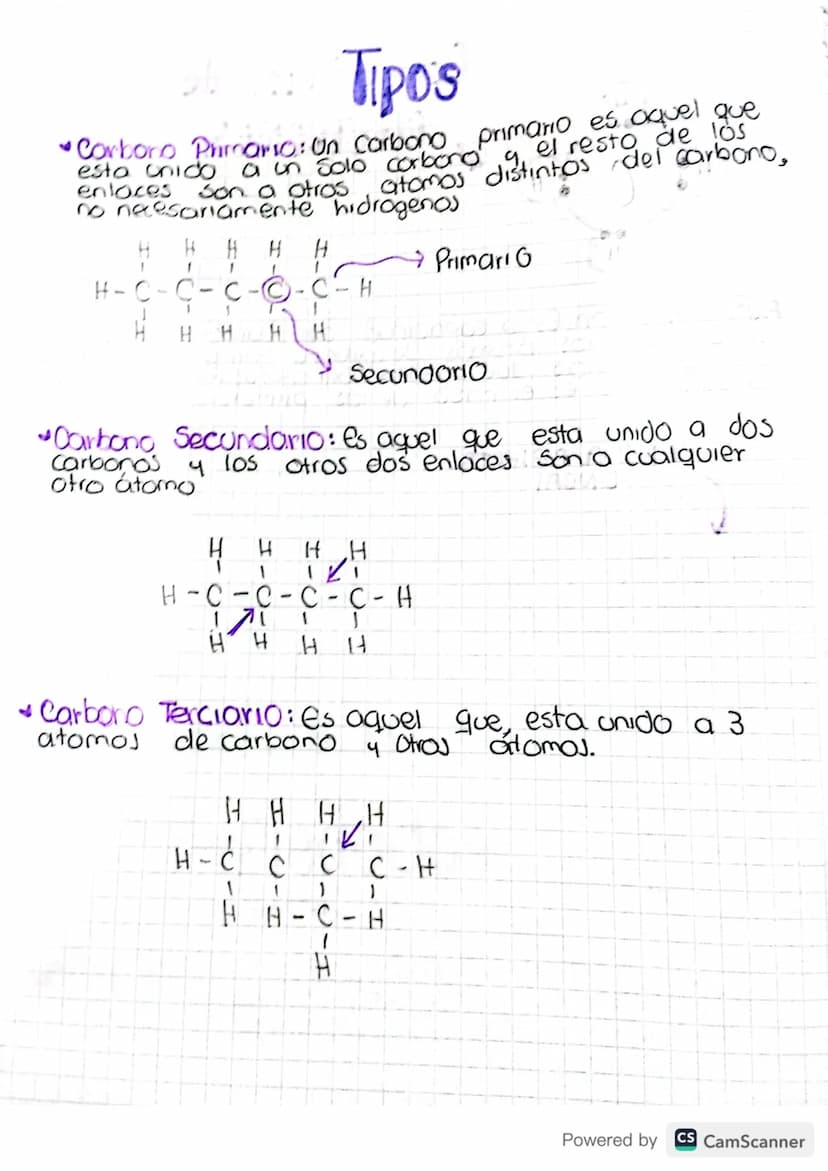 TIPOS
Carbono Primario: Un carbono primario es aquel que
esta unido a un solo carbono y el resto de los
enlaces son a otros atomos distintos del carbono,
no necesariamente hidrogenos
H H H H H
H - C - C - C - C - C - H
Primario
H H H H H
Secundario
Carbono Secundario: Es aquel que esta unido a dos
carbonos y los otros dos enlaces son a cualquier
otro átomo
H H H H
H - C - C - C - C - H
H H H H
Carbono Terciario: Es aquel que, esta unido a 3
atomos de carbono y otros átomos.
H H H H
H - C C C C - H
H H - C - H
H
Powered by CS CamScanner